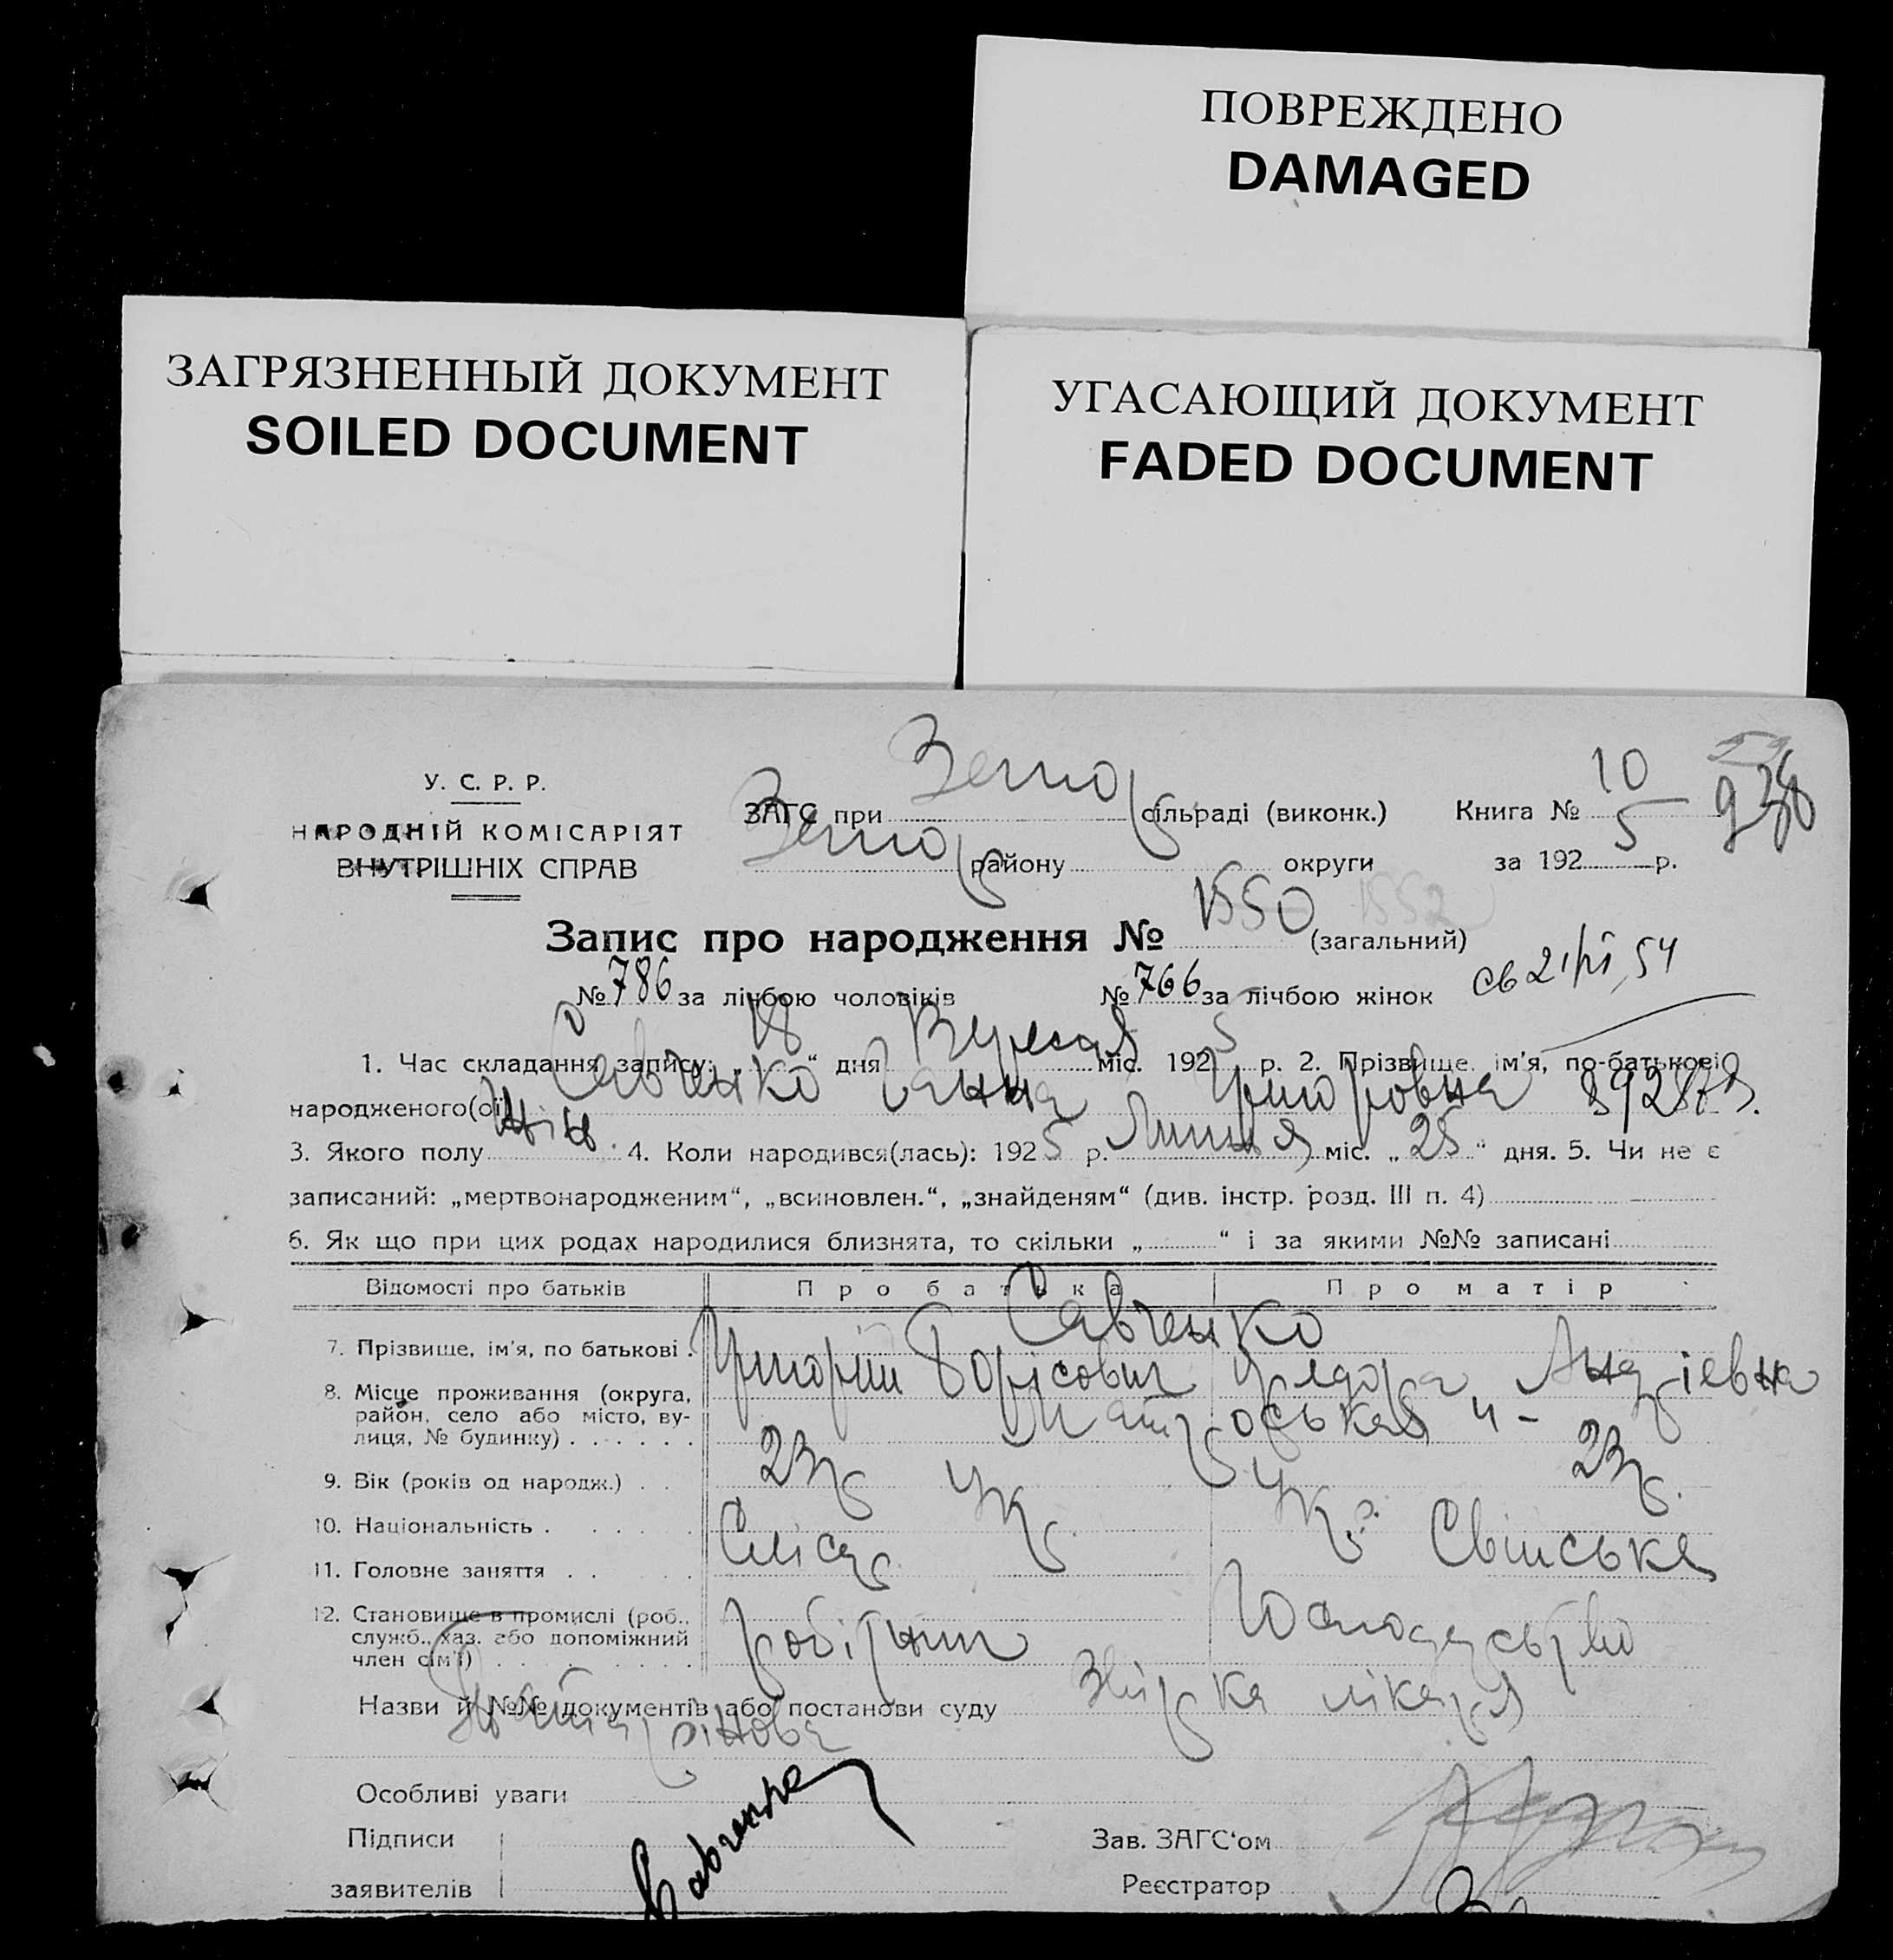 ПОВРЕЖДЕНО
DAMAGED
ЗАГРЯЗНЕННЫЙ ДОКУМЕНТ
SOILED DOCUMENT
УГАСАЮЩИЙ ДОКУМЕНТ
FADED DOCUMENT
У. С. Р. Р.
НАРОДНІЙ КОМІСАРІЯТ
ВНУТРІШНІХ СПРАВ
ЗАГС при сільраді (виконк.) Книга № 10
району округи за 192 5 р.
Запис про народження № 1550 (загальний)
№ 786 за лічбою чоловіків № 766 за лічбою жінок
1. Час складання запису: „ 18 “ дня міс. 192 5 р. 2. Прізвище, ім'я, по-батькові
народженого(ої) Савченко Ганна Григоровна
3. Якого полу жін. 4. Коли народився(лась): 192 5 р. Липня міс. „ 25 “ дня. 5. Чи не є
записаний: „мертвонародженим“, „всиновлен.“, „знайденям“ (див. інстр. розд. III п. 4)
6. Як що при цих родах народилися близнята, то скільки „ “ і за якими №№ записані
Відомості про батьків Про батька Про матір
7. Прізвище, ім'я, по батькові . Савченко
Григорій Борісович Андріевна
8. Місце проживання (округа,
район, село або місто, ву-
лиця, № будинку) . . . . . . Матроськая 4 -
9. Вік (років од народж.) . . 23р 23р.
10. Національність . . . . . Укр. Укр.
11. Головне заняття . . . . Слісар Свійське
12. Становище в промислі (роб.,
служб., хаз. або допоміжний
член сім'ї) . . . . . . . . робітник Господарство
Назви й №№ документів або постанови суду лікаря
Особливі уваги
Підписи Зав. ЗАГС'ом
заявителів Савченко Реєстратор